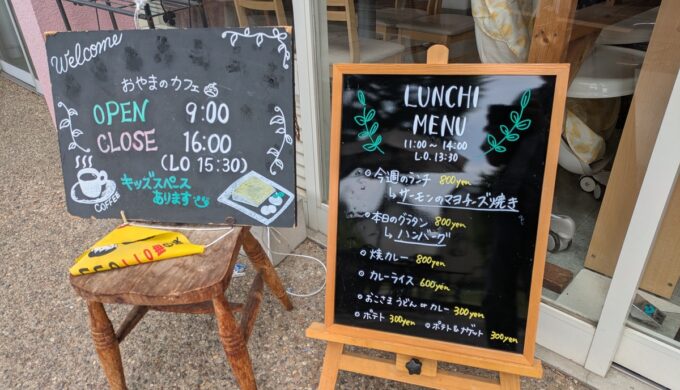 Welcome
おやまのカフェ
OPEN 9:00
CLOSE 16:00
(LO 15:30)
キッズスペース
あります
COFFEE
LUNCHI
MENU
11:00 ~ 14:00
L.O. 13:30
今週のランチ 800yen
↳ サーモンのマヨチーズ焼き
本日のグラタン 800yen
↳ ハンバーグ
焼カレー 800yen
カレーライス 600yen
おこさまうどん or カレー 300yen
ポテト 300yen ポテト&ナゲット 300yen